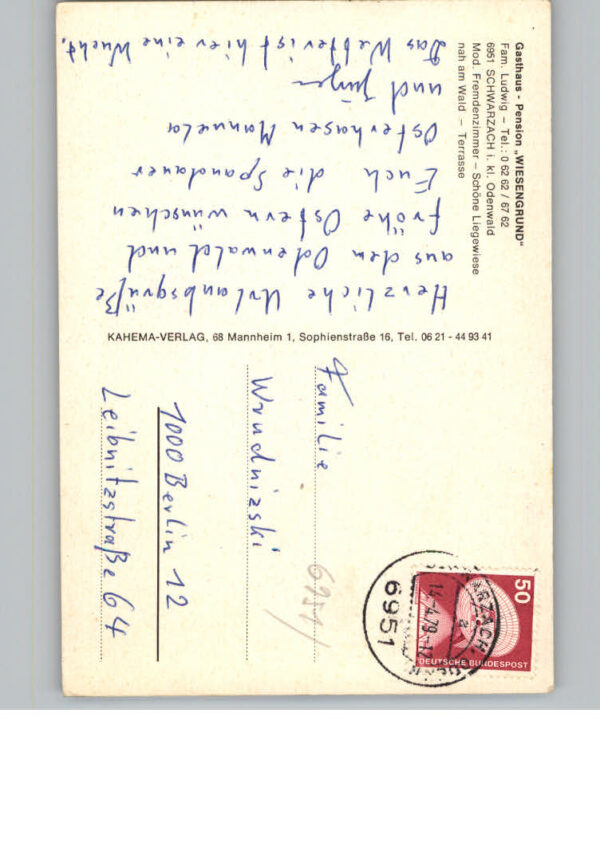 Gasthaus - Pension „WIESENGRUND"
Fam. Ludwig – Tel.: 0 62 62 / 67 62
6951 SCHWARZACH i. kl. Odenwald
Mod. Fremdenzimmer – Schöne Liegewiese
nah am Wald – Terrasse
Herzliche Urlaubsgrüße
aus dem Odenwald und
frohe Ostern wünschen
Euch die Spandauer
Osterhasen Manuela
und Jürgen
Das Wetter ist hier eine Wucht.
KAHEMA-VERLAG, 68 Mannheim 1, Sophienstraße 16, Tel. 06 21 - 44 93 41
50
DEUTSCHE BUNDESPOST
6951
14.4.79
Familie
Wrudnizski
1000 Berlin 12
Leibnitzstraße 64
6951/